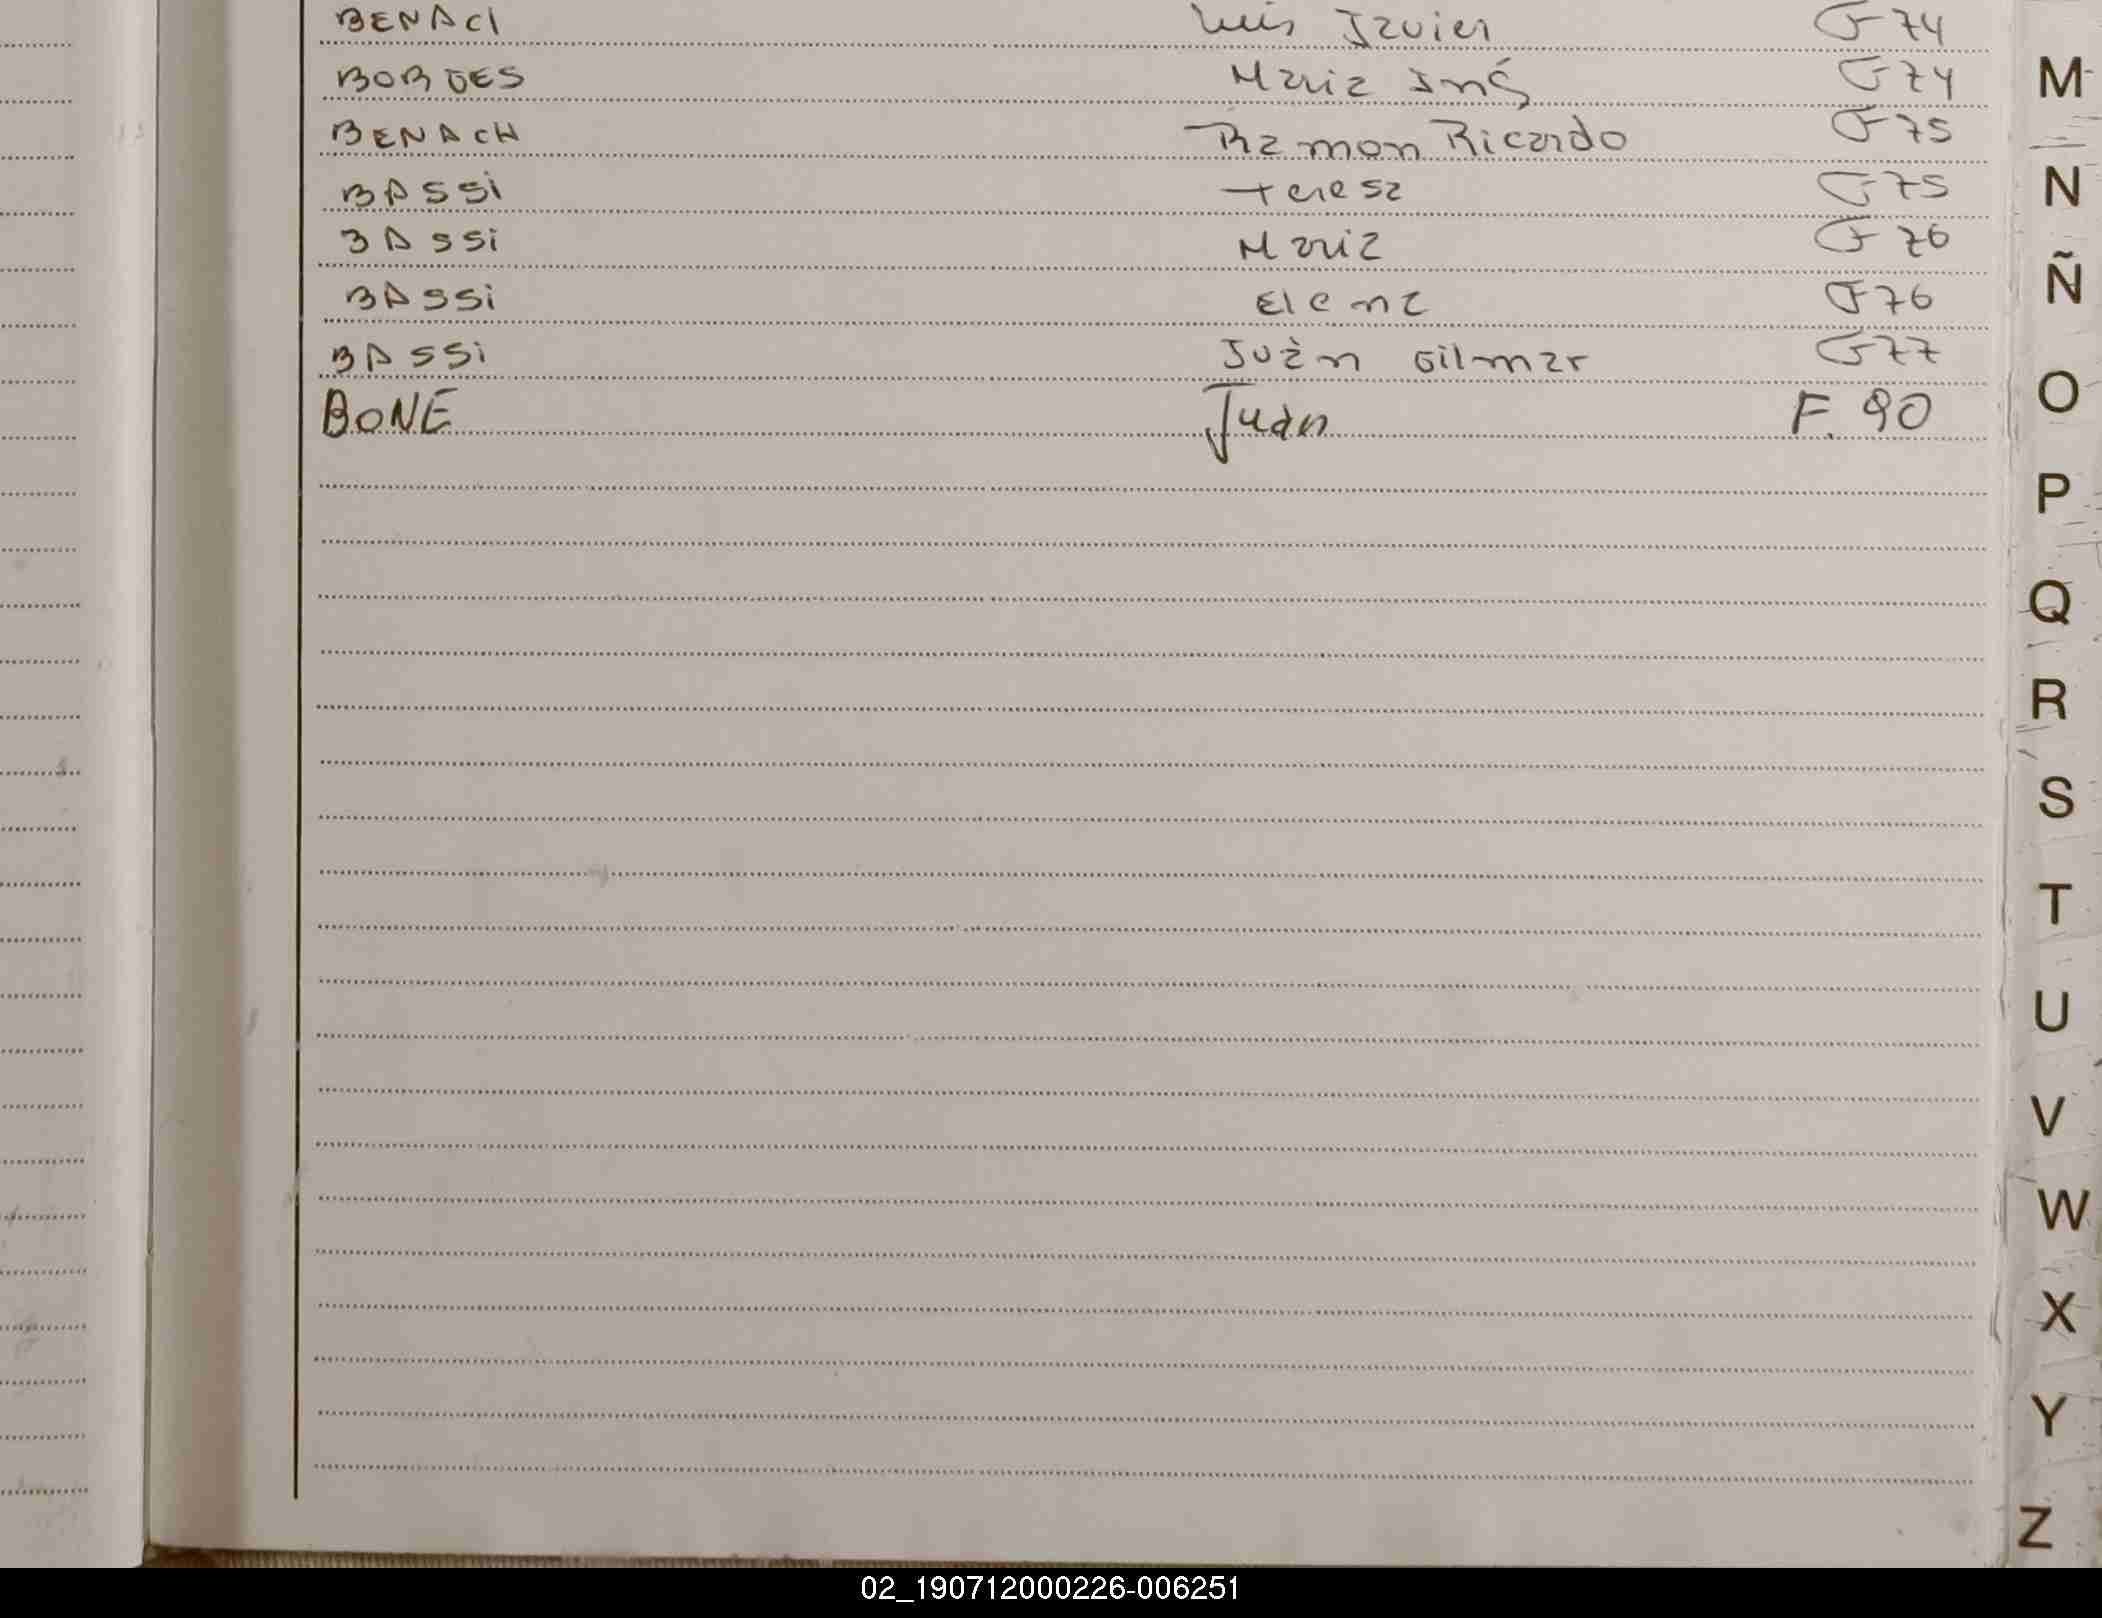 BENACI Luis Javier F 74
BORGES Maria Inés F 74
BENACH Ramon Ricardo F 75
BASSi teresa F 75
BASSi Maria F 76
BASSi Elena F 76
BASSi Juan Gilmar F 77
BONE Juan F. 90
M
N
Ñ
O
P
Q
R
S
T
U
V
W
X
Y
Z
02_190712000226-006251